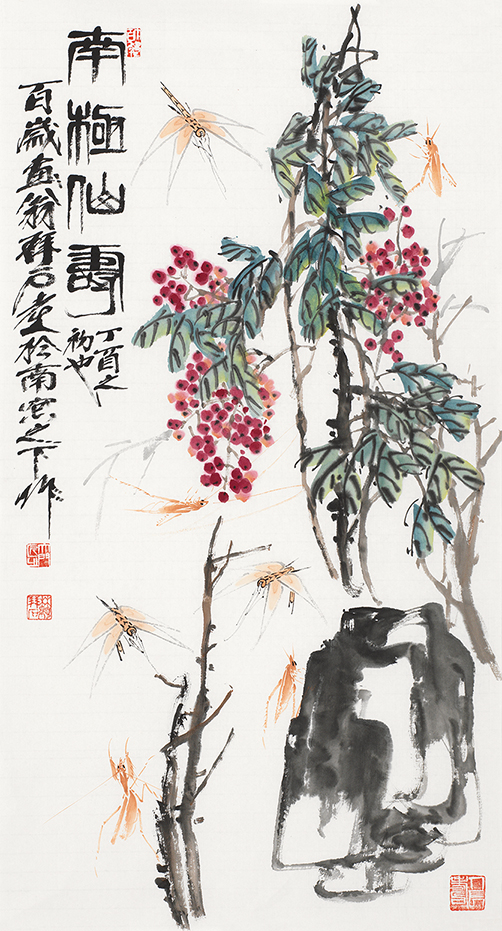 南極仙壽
丁酉之
初也
百歲畫翁拜石於南窗之下作